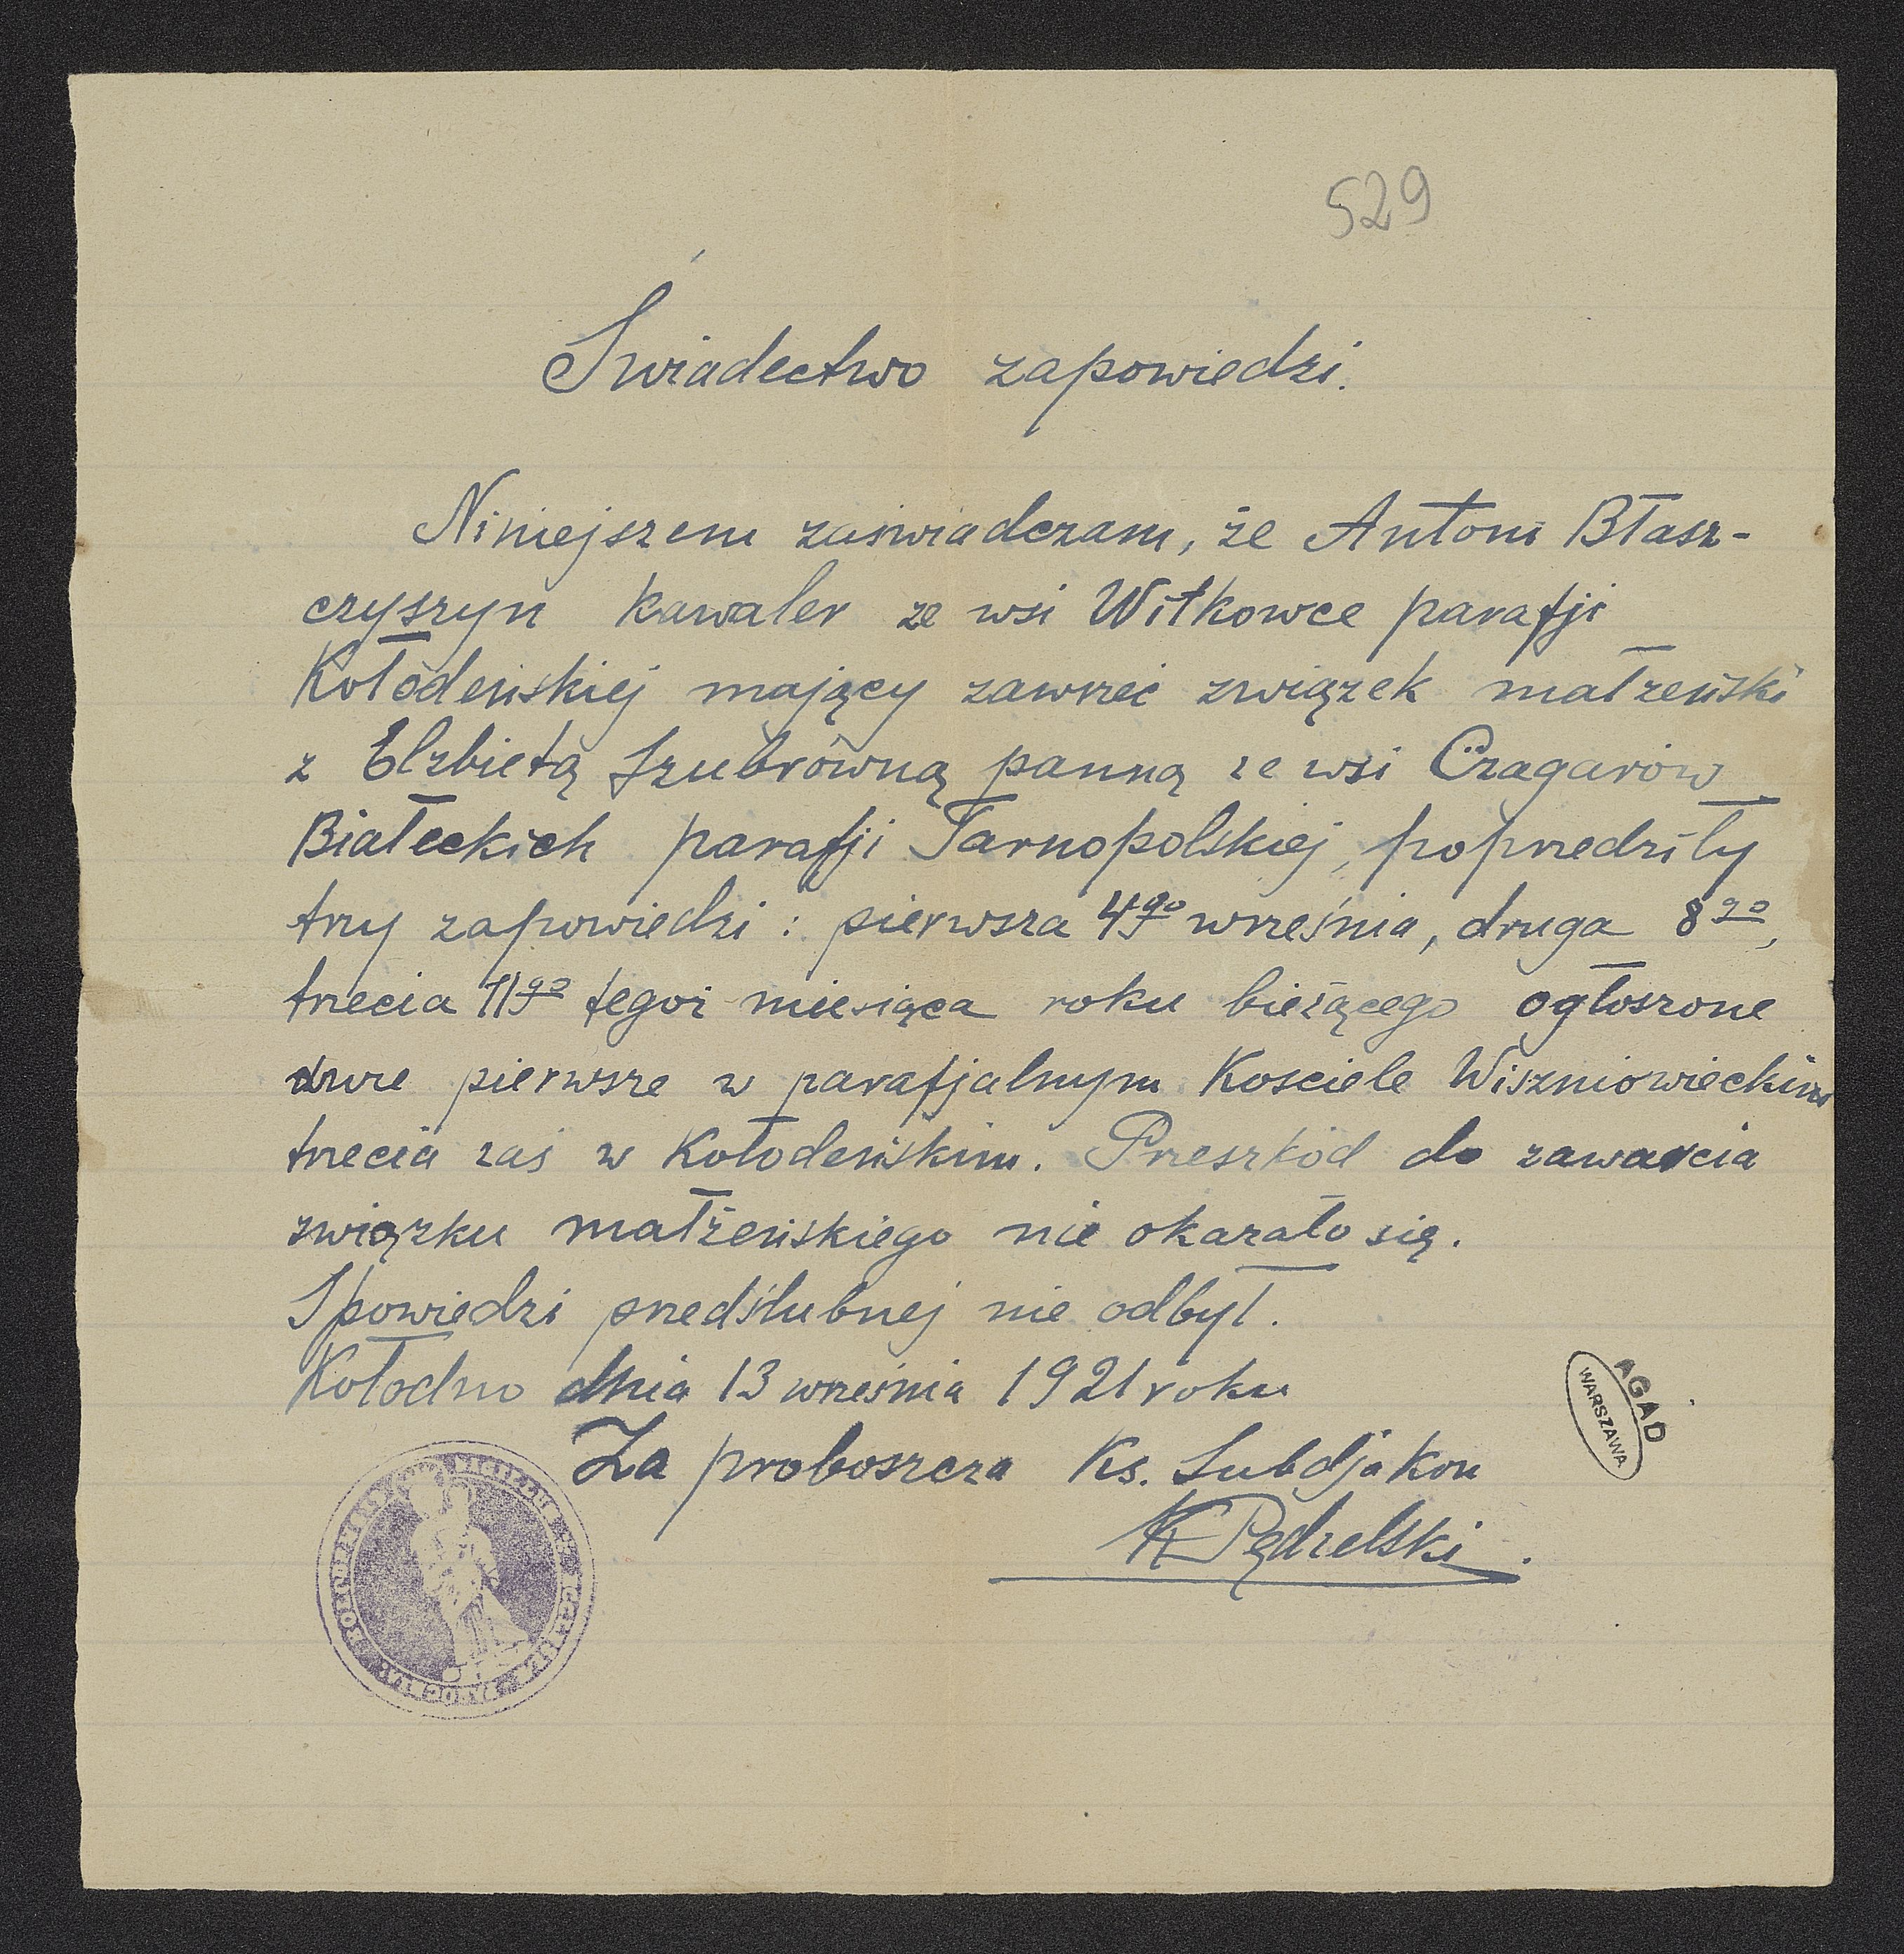 529
Świadectwo zapowiedzi.
Niniejszem zaświadczam, że Antoni Błasz-
czyszyn kawaler ze wsi Witkowce parafji
Kołodeńskiej mający zawrzeć związek małżeński
z Elżbietą Szubrówną panną ze wsi Czagarów
Białeckich parafji Tarnopolskiej, poprzedziły
trzy zapowiedzi: pierwsza 4go września, druga 8go,
trzecia 11go tegoż miesiąca roku bieżącego ogłoszone
dwie pierwsze w parafjalnym Kosciele Wiszniowieckim
trzecia zaś w Kołodeńskim. Przeszkód do zawarcia
związku małżeńskiego nie okazało się.
Spowiedzi przedślubnej nie odbył.
Kołodno dnia 13 września 1921 roku
Za proboszcza Ks. Subdjakon
K Pędzelski.
AGAD
WARSZAWA